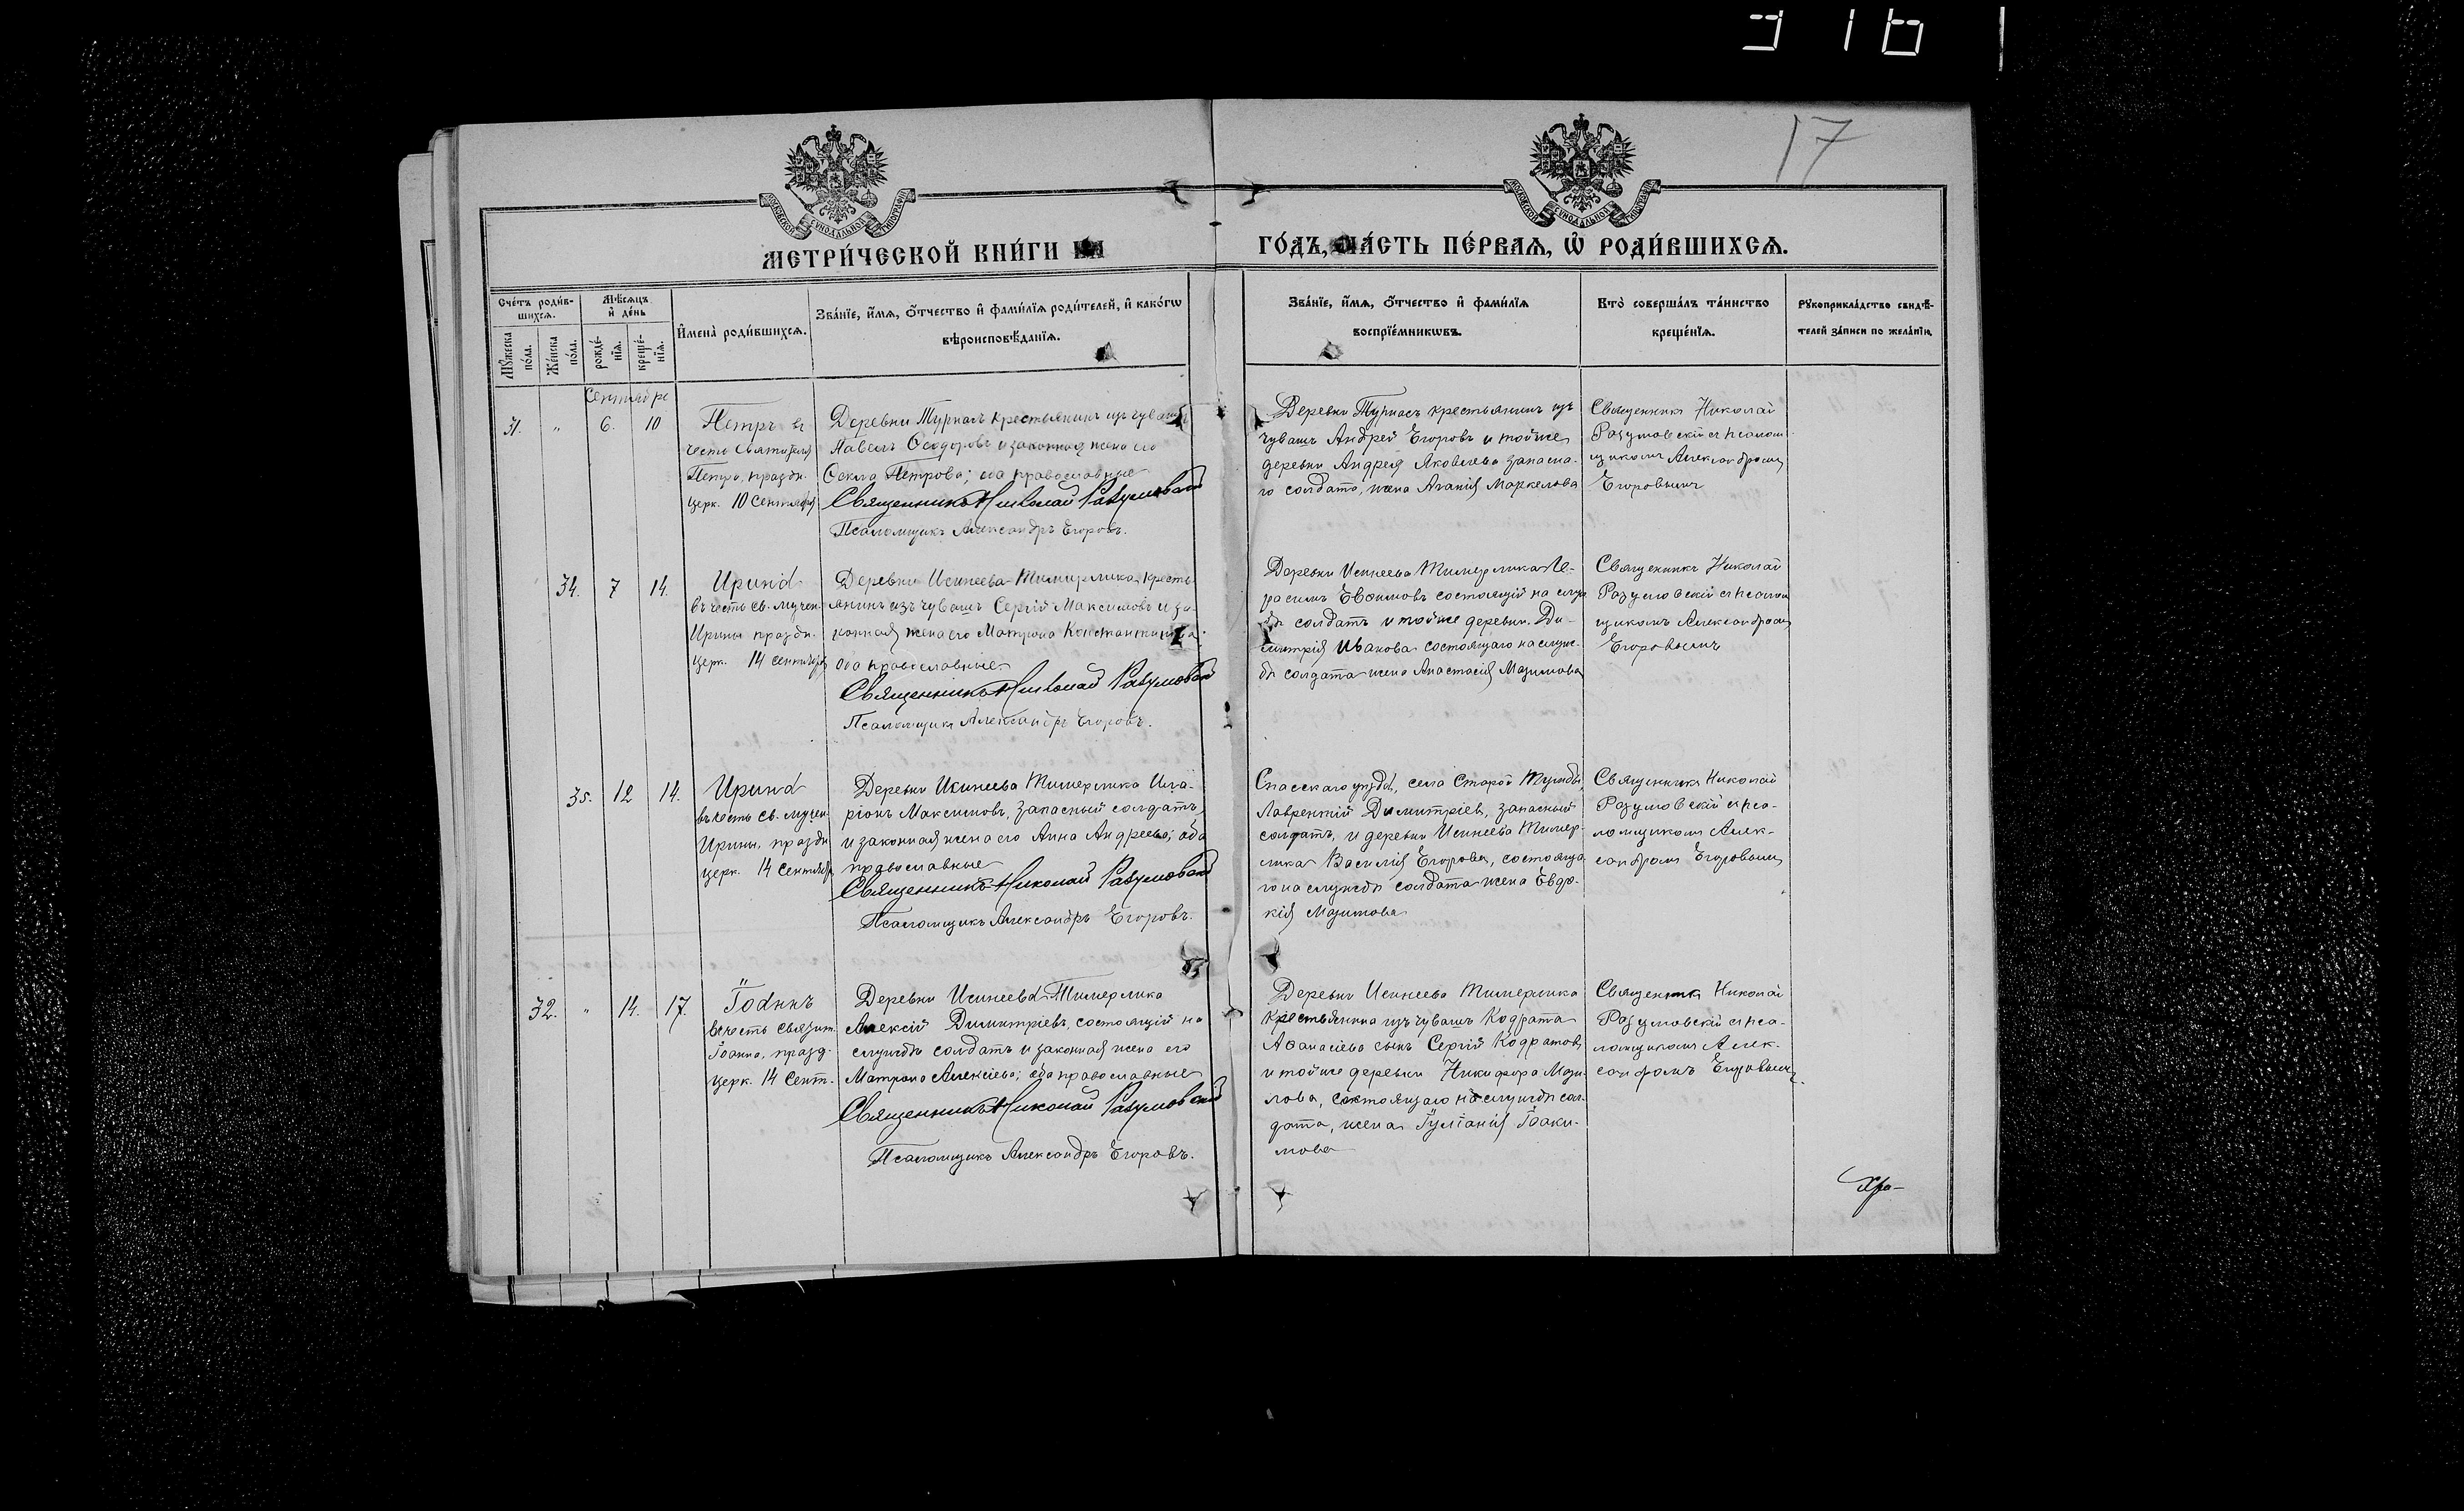 17
МОСКОВСКОЙ СѴНОДАЛЬНОЙ ТИПОГРАФІИ
МОСКОВСКОЙ СѴНОДАЛЬНОЙ ТИПОГРАФІИ
МЕТРИ́ЧЕСКОЙ КНИ́ГИ НА
ГО́ДЪ, ЧА́СТЬ ПЕ́РВАѦ, Ѡ҆ РОДИ́ВШИХСѦ.
Сче́тъ роди́в-
шихсѧ.
Мѣ́сѧцъ
и҆ де́нь
Мꙋ́жеска
по́ла.
Же́нска
по́ла.
рожде́-
нїѧ.
креще́-
нїѧ.
И҆мена̀ роди́вшихсѧ.
Зва́нїе, и҆́мѧ, ѻ҆́тчество и҆ фами́лїѧ роди́телей, и҆ како́гѡ
вѣроисповѣ́данїѧ.
Зва́нїе, и҆́мѧ, ѻ҆́тчество и҆ фами́лїѧ
воспрїе́мникѡвъ.
Кто̀ соверша́лъ та́инство
креще́нїѧ.
Рꙋкоприкла́дство свидѣ́-
телей за́писи по жела́нїю.
Сентябре
31. " 6. 10
Петръ въ
честь Святителя
Петра, праздн.
церк. 10 Сентября
Деревни Турнасъ крестьянинъ изъ чувашъ
Павелъ Ѳеодоровъ и законная жена его
Ѳекла Петрова; оба православные
Священникъ Николай Разумовскій
Псаломщикъ Александръ Егоровъ.
Деревни Турнасъ крестьянинъ изъ
чувашъ Андрей Егоровъ и тойже
деревни Андрея Яковлева запасна-
го солдата, жена Агаѳія Маркелова
Священникъ Николай
Разумовскій съ псалом
щикомъ Александромъ
Егоровымъ
34. 7 14.
Ирина
въ честь св. мучен.
Ирины праздн.
церк. 14 сентября
Деревни Исинеева-Тимерлика кресть-
янинъ изъ чувашъ Сергій Максимовъ и за-
конная жена его Матрона Константинова;
оба православные
Священникъ Николай Разумовскій
Псаломщикъ Александръ Егоровъ.
Деревни Исинеева Тимерлика Ге-
расимъ Евѳимовъ состоящій на служ
бѣ солдатъ и тойже деревни. Ди-
митрія Иванова состоящаго на служ-
бѣ солдата жена Анастасія
Священникъ Николай
Разумовскій съ псалом
щикомъ Александромъ
Егоровымъ
35. 12 14.
Ирина
въ честь св. мучен.
Ирины, праздн
церк. 14 Сентября
Деревни Исинеева Тимерлика Ила-
ріонъ Максимовъ, запасный солдатъ,
и законная жена его Анна Андреева; оба
православные
Священникъ Николай Разумовскій
Псаломщикъ Александръ Егоровъ.
Спасскаго уѣзда, села Старой
Лаврентій Димитріевъ, запасный
солдатъ, и деревни Исинеева Тимер-
лика Василія Егорова, состояща
го на службѣ солдата жена Евдо-
кія
Священникъ Николай
Разумовскій съ пса-
ломщикомъ Алек-
сандромъ Егоровымъ
32. " 14. 17.
Іоаннъ
въ честь святит.
Іоанна, празд.
церк. 14 Сент.
Деревни Исинеева-Тимерлика
Алексій Димитріевъ, состоящій на
службѣ солдатъ и законная жена его
Матрона Алексіева; оба православные
Священникъ Николай Разумовскій
Псаломщикъ Александръ Егоровъ.
Деревни Исинеева Тимерлика
крестьянина изъ чувашъ Кодрата
Аѳанасіева сынъ Сергій Кодратовъ
и тойже деревни Никифора
состоящаго на службѣ сол-
дата, жена Іуліанія Іоаки-
мова
Священникъ Николай
Разумовскій съ пса-
ломщикомъ Алек-
сандромъ Егоровымъ.